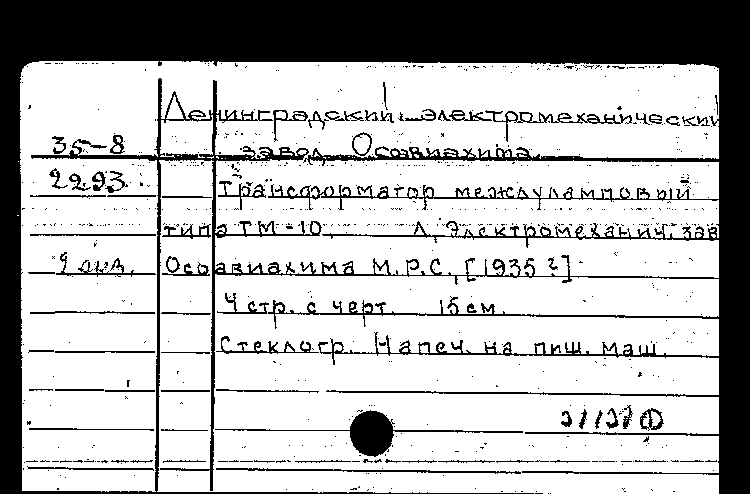 Ленинградский электромеханический
35-8 завод Осоавиахима.
2293 Трансформатор междуламповый
типа ТМ-10. Л, Электромеханич. зав
Осоавиахима М.Р.С., [1935?]
4 стр. с черт. 15 см.
Стеклогр. Напеч. на пиш. маш.